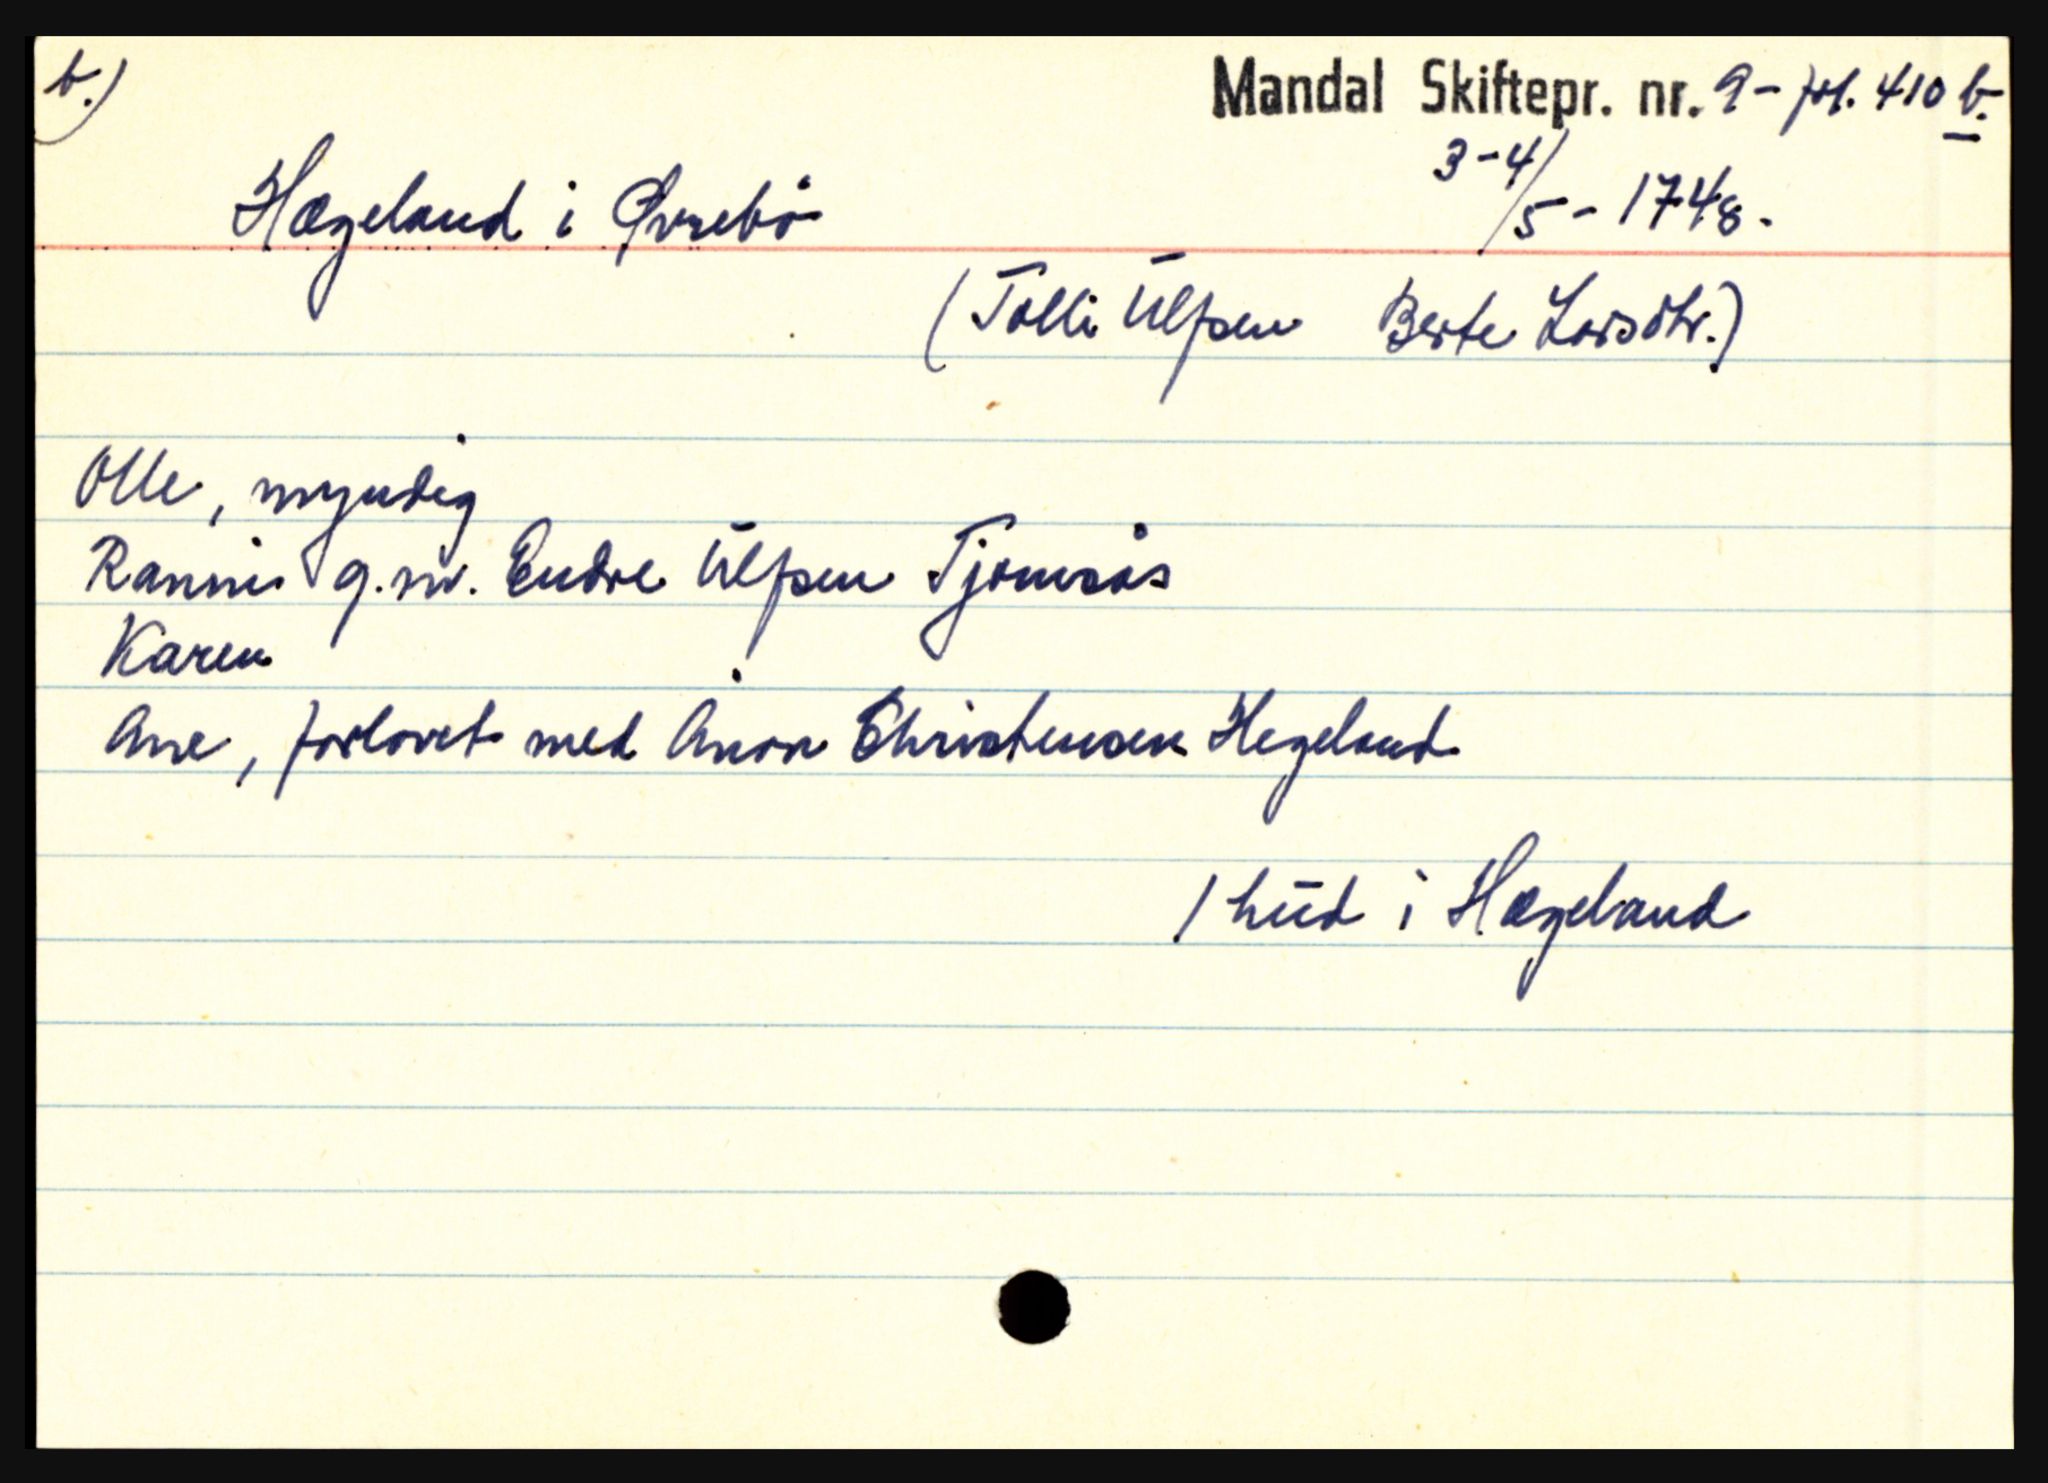 b.)
Mandal Skiftepr. nr. 9 - fol. 410 b.
3-4/5 - 1748.
Hægeland i Øvrebø
(Tolli Ulfsen Berte Larsdtr.)
Olle, myndig
Ranni g.m. Endre Ulfsen Tjomsås
Karen
Ane, forlovet med Ånon Christensen Hegeland
1 hud i Hægeland